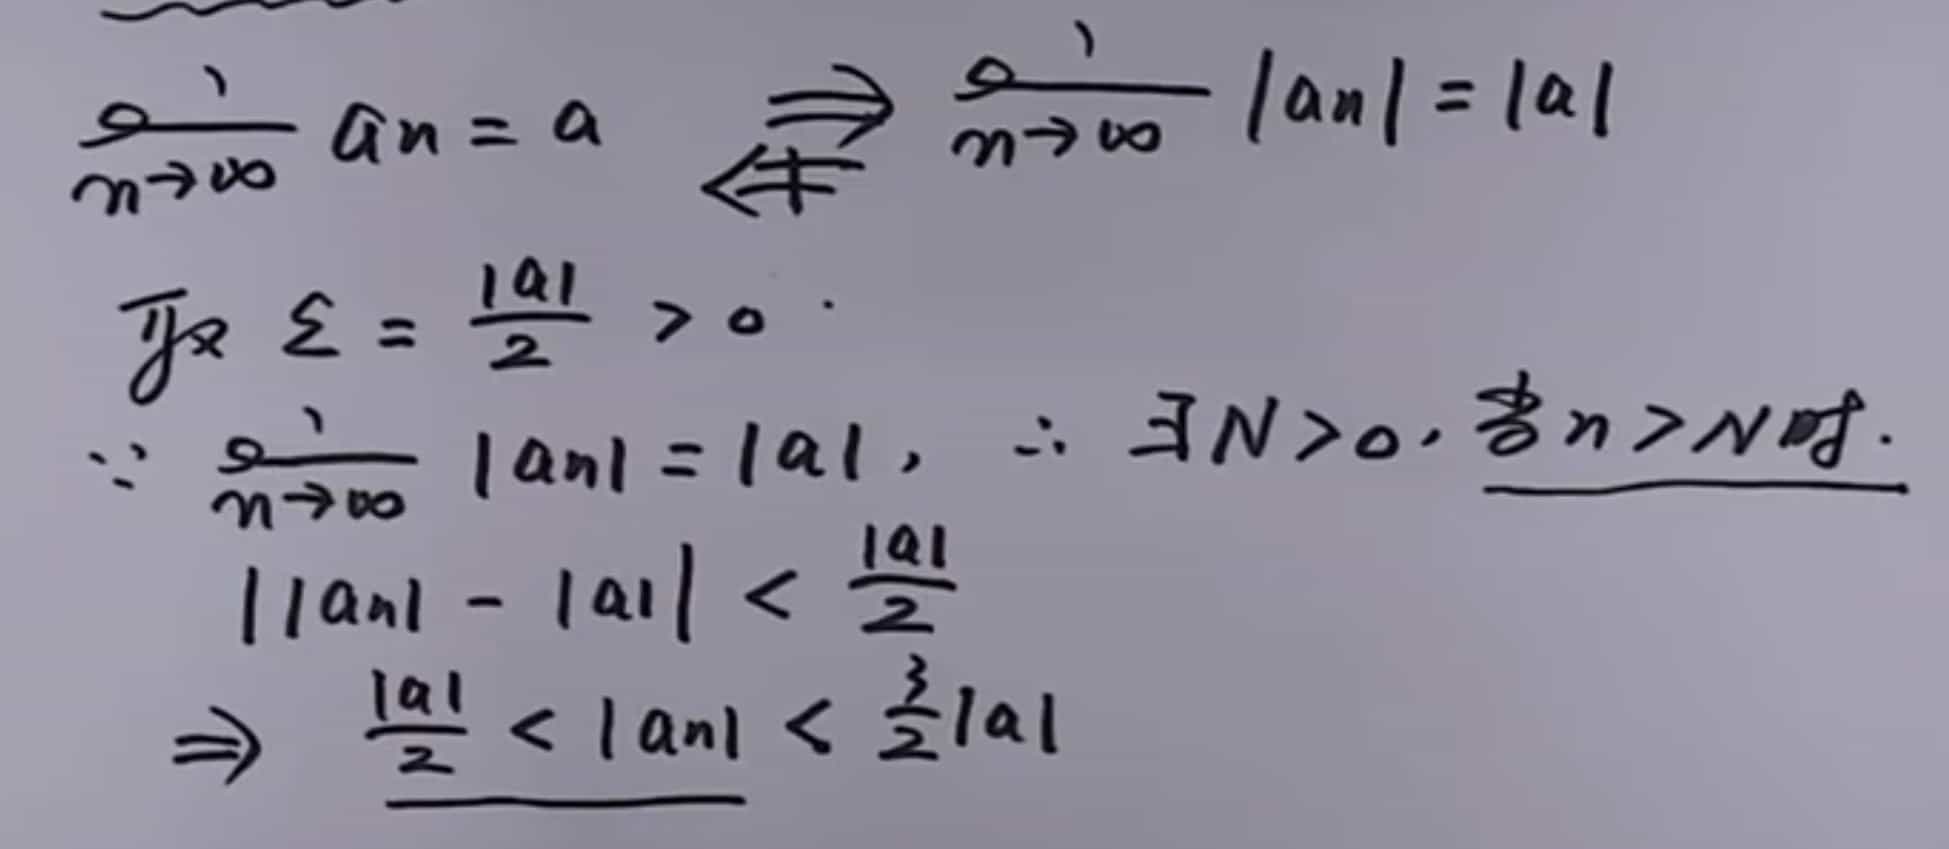 lim n→∞ an = a ⇒ ⇍ lim n→∞ |an| = |a|
取 ε = |a|/2 > 0.
∵ lim n→∞ |an| = |a|, ∴ ∃N>0, 当n>N时.
||an| - |a|| < |a|/2
⇒ |a|/2 < |an| < 3/2|a|